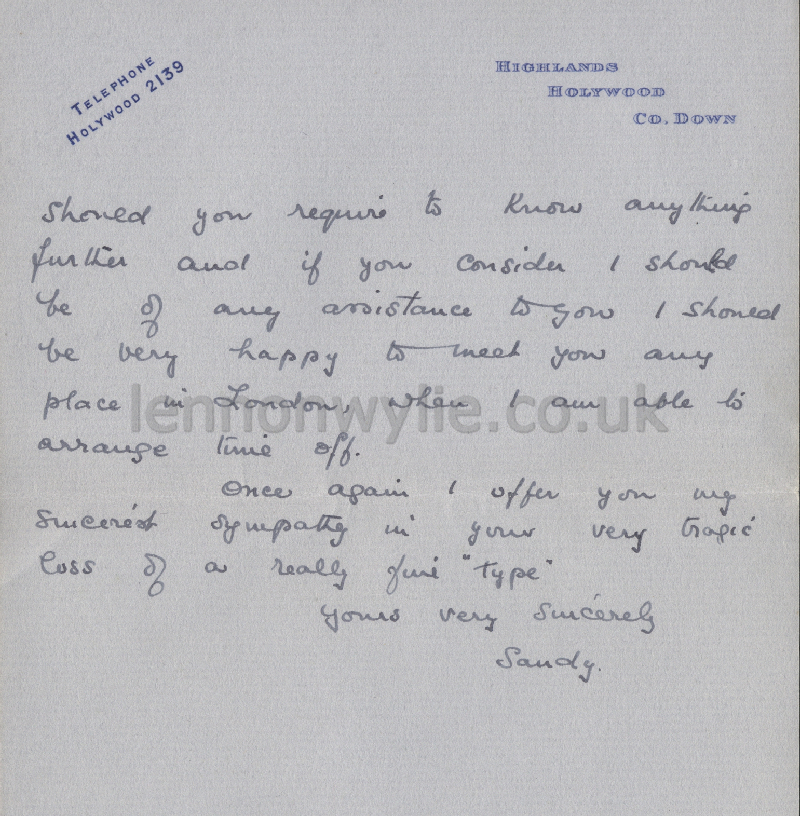 TELEPHONE
HOLYWOOD 2139
HIGHLANDS
HOLYWOOD
CO. DOWN
Should you require to know anything
further and if you consider I should
be of any assistance to you I should
be very happy to meet you any
place in London, when I am able to
arrange time off.
Once again I offer you my
sincerest sympathy in your very tragic
loss of a really fine "type"
Yours very sincerely
Sandy.
lennonwylie.co.uk